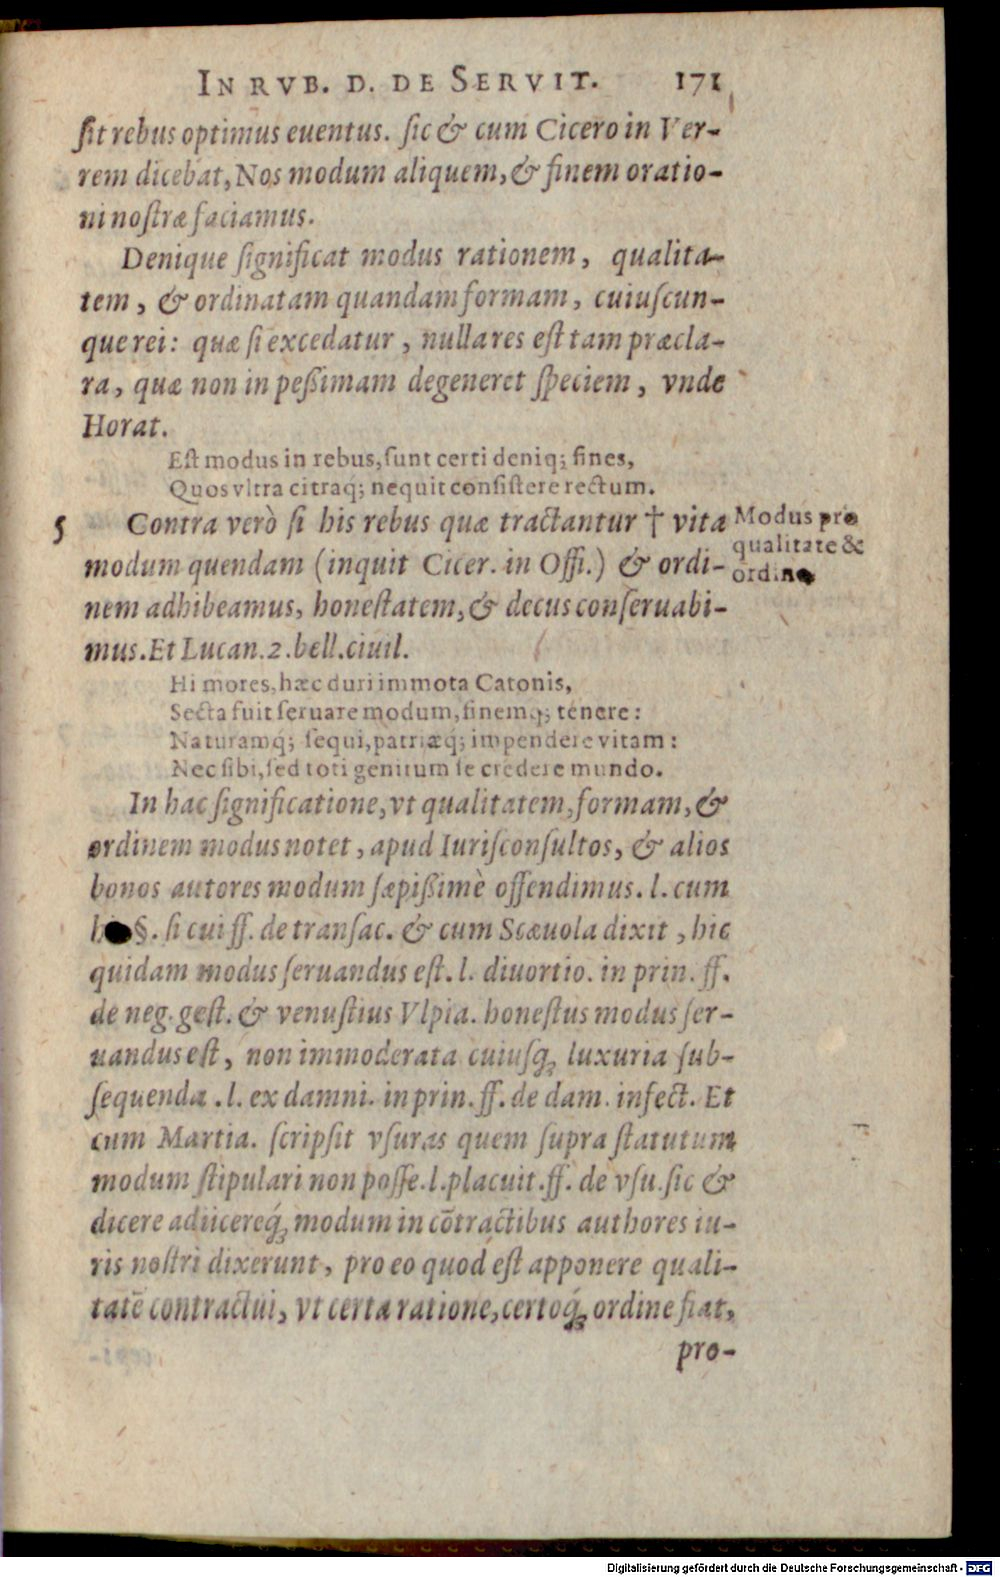 IN RVB. D. DE SERVIT. 171
ſit rebus optimus euentus. ſic & cum Cicero in Ver-
rem dicebat, Nos modum aliquem, & finem oratio-
ni noſtræ faciamus.
Denique ſignificat modus rationem, qualita-
tem, & ordinatam quandam formam, cuiuſcun-
que rei: quæ ſi excedatur, nulla res eſt tam præcla-
ra, quæ non in peßimam degeneret ſpeciem, vnde
Horat.
Eſt modus in rebus, ſunt certi deniq; fines,
Quos vltra citraq́; nequit conſiſtere rectum.
5 Contra verò ſi his rebus quæ tractantur † vita
modum quendam (inquit Cicer. in Offi.) & ordi-
nem adhibeamus, honeſtatem, & decus conſeruabi-
mus. Et Lucan. 2. bell. ciuil.
Modus pro
qualitate &
ordine
Hi mores, hæc duri immota Catonis,
Secta fuit ſeruare modum, finemq; tenere:
Naturamq́; ſequi, patriæq́; impendere vitam:
Nec ſibi, ſed toti genitum ſe credere mundo.
In hac ſignificatione, vt qualitatem, formam, &
ordinem modus notet, apud Iuriſconſultos, & alios
bonos autores modum ſæpißimè offendimus. l. cum
§. ſi cui ff. de tranſac. & cum Scæuola dixit, hic
quidam modus ſeruandus eſt. l. diuortio. in prin. ff.
de neg. geſt. & venuſtius Vlpia. honeſtus modus ſer-
uandus eſt, non immoderata cuiuſq́; luxuria ſub-
ſequenda. l. ex damni. in prin. ff. de dam. infect. Et
cum Martia. ſcripſit vſuras quem ſupra ſtatutum
modum ſtipulari non poſſe. l. placuit. ff. de vſu. ſic &
dicere adiicereq́; modum in cōtractibus authores iu-
ris noſtri dixerunt, pro eo quod eſt apponere quali-
tatē contractui, vt certa ratione, certoq́; ordine fiat,
pro-
Digitalisierung gefördert durch die Deutsche Forschungsgemeinschaft - DFG